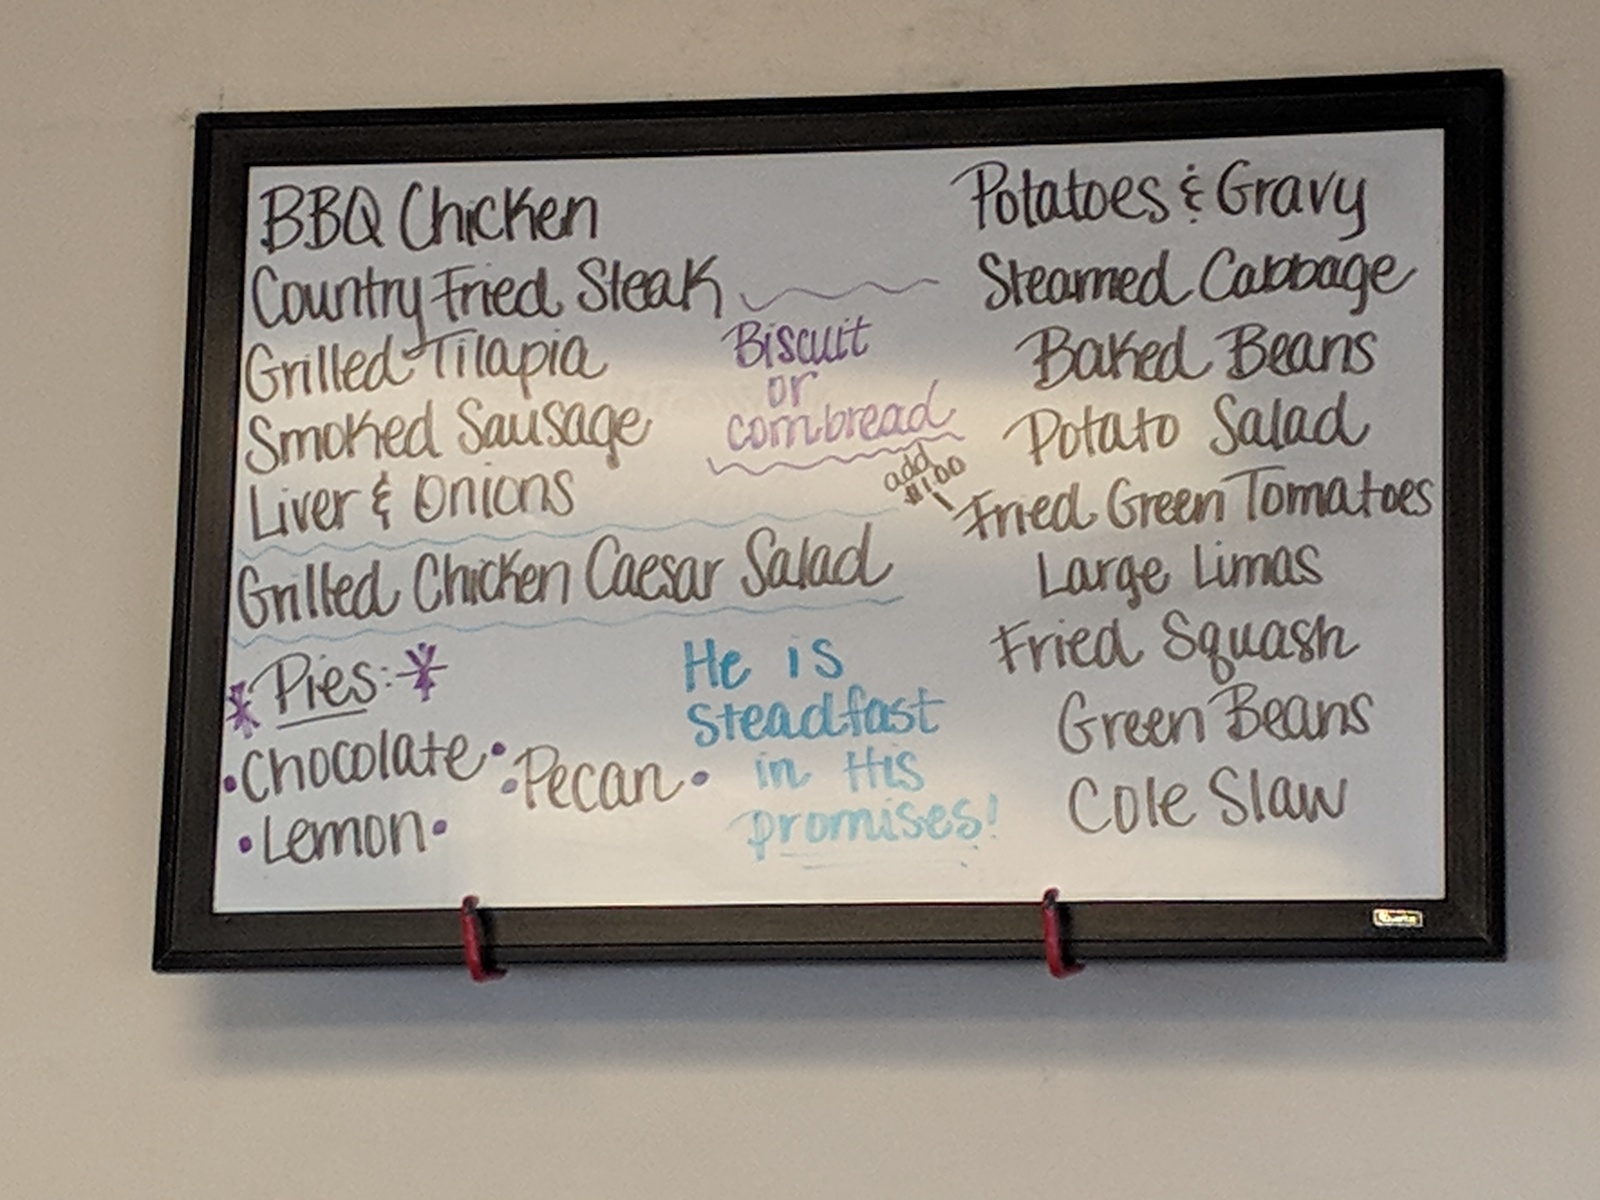 BBQ Chicken
Country Fried Steak
Grilled Tilapia
Smoked Sausage
Liver & Onions
Grilled Chicken Caesar Salad
Biscuit
or
cornbread
Pies:
Chocolate
Pecan
Lemon
He is
steadfast
in His
promises!
Potatoes & Gravy
Steamed Cabbage
Baked Beans
Potato Salad
add
$1.00
Fried Green Tomatoes
Large Limas
Fried Squash
Green Beans
Cole Slaw
Quartet